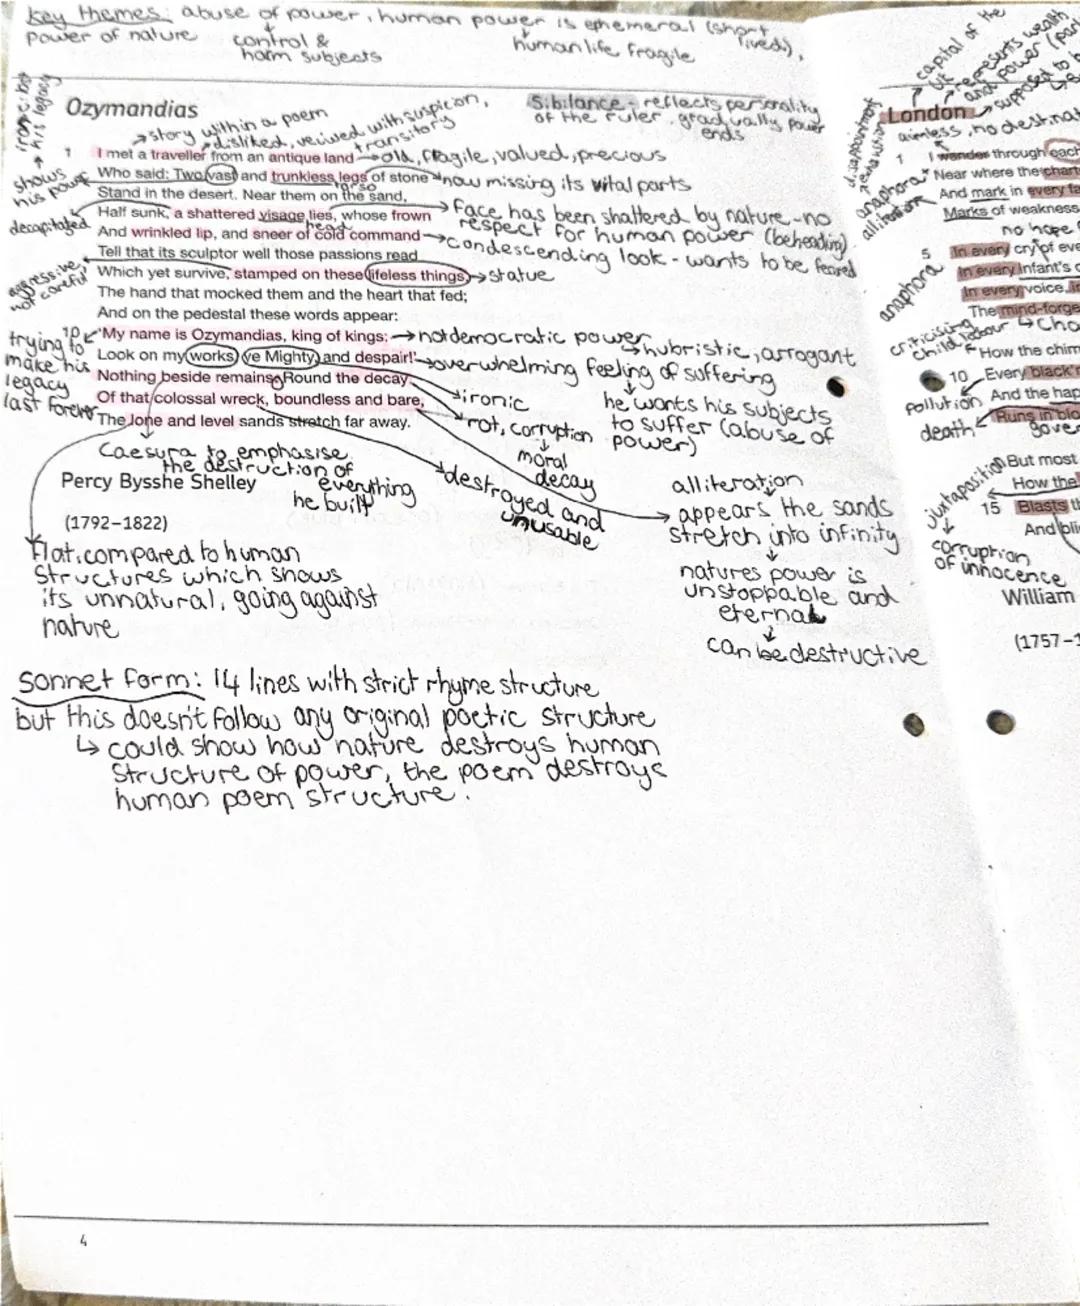 Key themes: abuse of power, human power is ephemeral (short lived),
power of nature
control & harm subjects
human life fragile
Ozymandias
→story within a poem
disliked, veiwed with suspicion,
transitory
Sibilance - reflects personality
of the ruler, gradually power
ends
1 I met a traveller from an antique land →old, fragile, valued, precious
Who said: Two vast and trunkless legs of stone →now missing its vital parts
torso
Stand in the desert. Near them on the sand,
Half sunk, a shattered visage lies, whose frown
head
And wrinkled lip, and sneer of cold command
Tell that its sculptor well those passions read
Which yet survive, stamped on these lifeless things, →statue
The hand that mocked them and the heart that fed;
And on the pedestal these words appear:
10 'My name is Ozymandias, king of kings: →not democratic power
Look on my works, ye Mighty, and despair!' →overwhelming feeling of suffering
Nothing beside remains. Round the decay
Of that colossal wreck, boundless and bare,
The lone and level sands stretch far away.
shows his power
his legacy
decapitated
aggressive, not careful
trying to
make his
legacy
last forever
face has been shattered by nature - no
respect for human power (beheading)
condescending look - wants to be feared
hubristic, arrogant
he wants his subjects
to suffer (abuse of
power)
ironic
rot, corruption
moral
decay
destroyed and
unusable
Caesura to emphasise
the destruction of
everything
he built
Percy Bysshe Shelley
(1792–1822)
flat, compared to human
structures which shows
its unnatural, going against
nature
alliteration
appears the sands
stretch into infinity
natures power is
unstoppable and
eternal
can be destructive
Sonnet form: 14 lines with strict rhyme structure
but this doesn't follow any original poetic structure
↳ could show how nature destroys human
structure of power, the poem destroys
human poem structure.
4
capital of the
represents wealth
and power
supposed to
London
aimless, no destinat
1 I wander through each
Near where the chart
And mark in every fa
Marks of weakness
no hope
5 In every cry of eve
In every Infant's c
In every voice, in
The mind-forge
How the chim
10 Every black'n
And the hap
Runs in blo
But most
How the
15 Blasts t
And bli
anaphora
alliteration
anaphora
criticising
child labour
pollution
death
juxtaposition
corruption
of innocence
William
(1757–1